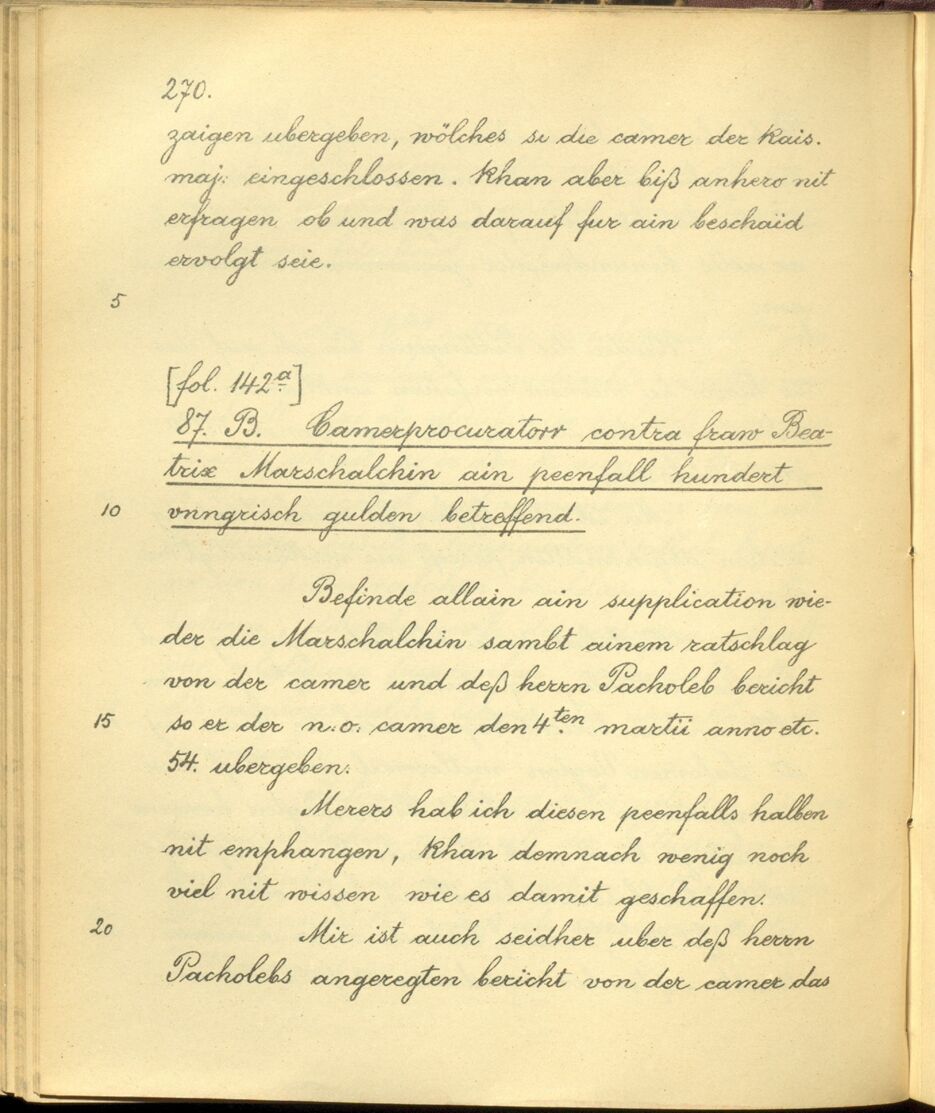 270.
zaigen ubergeben, wölches si die camer der kais.
maj: eingeschlossen. Khan aber biß anhero nit
erfragen ob und was darauf fur ain beschaid
ervolgt seie.
5
[fol. 142a.]
87. B. Camerprocuratorr contra fraw Bea-
trix Marschalchin ain peenfall hundert
10 vnngrisch gulden betreffend.
Befinde allain ain supplication wie-
der die Marschalchin sambt ainem ratschlag
von der camer und deß herrn Pacholeb bericht
15 so er der n: o: camer den 4ten martii anno etc.
54. ubergeben.
Merers hab ich diesen peenfalls halben
nit emphangen, khan demnach wenig noch
viel nit wissen wie es damit geschaffen.
20 Mir ist auch seidher uber deß herrn
Pacholebs angeregten bericht von der camer das